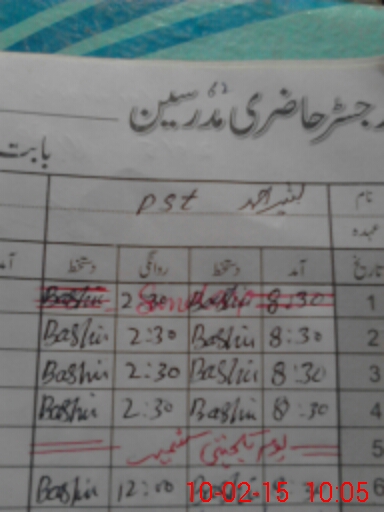 رجسٹر حاضری مدرسین
بابت
نام بشیر احمد PST
عہدہ
تاریخ آمد دستخط روانگی دستخط آمد
1 8:30 Bashir 2:30 Bashir Sunday
2 8:30 Bashir 2:30 Bashir
3 8:30 Bashir 2:30 Bashir
4 8:30 Bashir 2:30 Bashir
5 یوم یکجہتی کشمیر
6 Bashir 12:00 Bashir
10-02-15 10:05